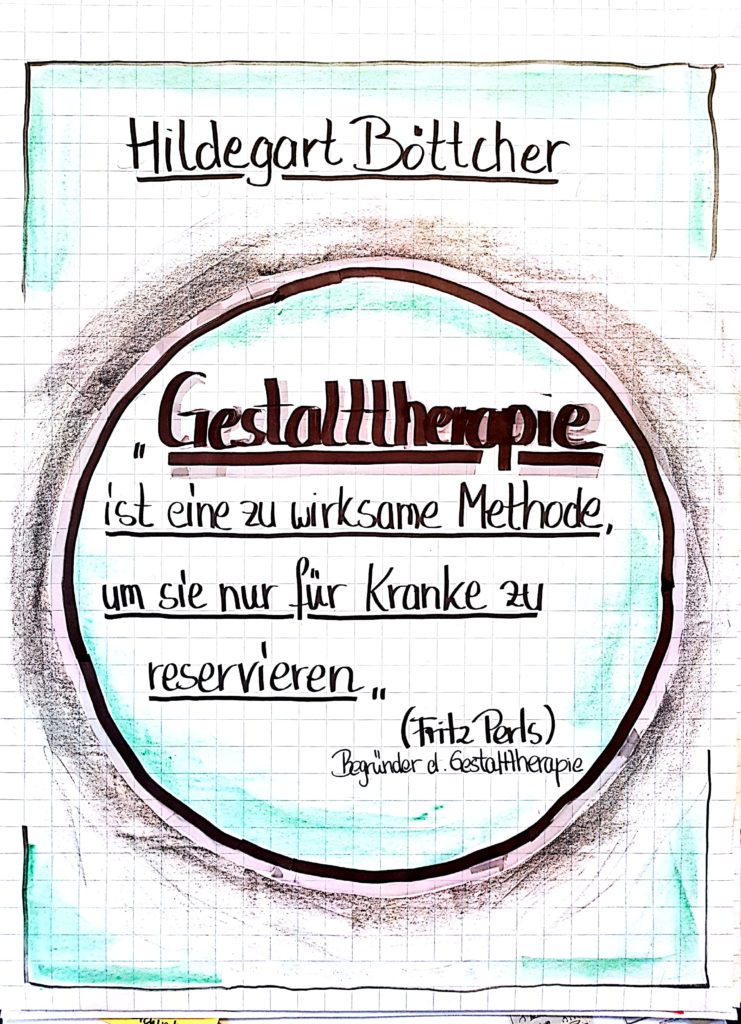 Hildegart Böttcher
„Gestalttherapie
ist eine zu wirksame Methode,
um sie nur für Kranke zu
reservieren„
(Fritz Perls)
Begründer d. Gestalttherapie